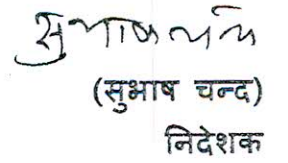 सुभाष चन्द
(सुभाष चन्द)
निदेशक